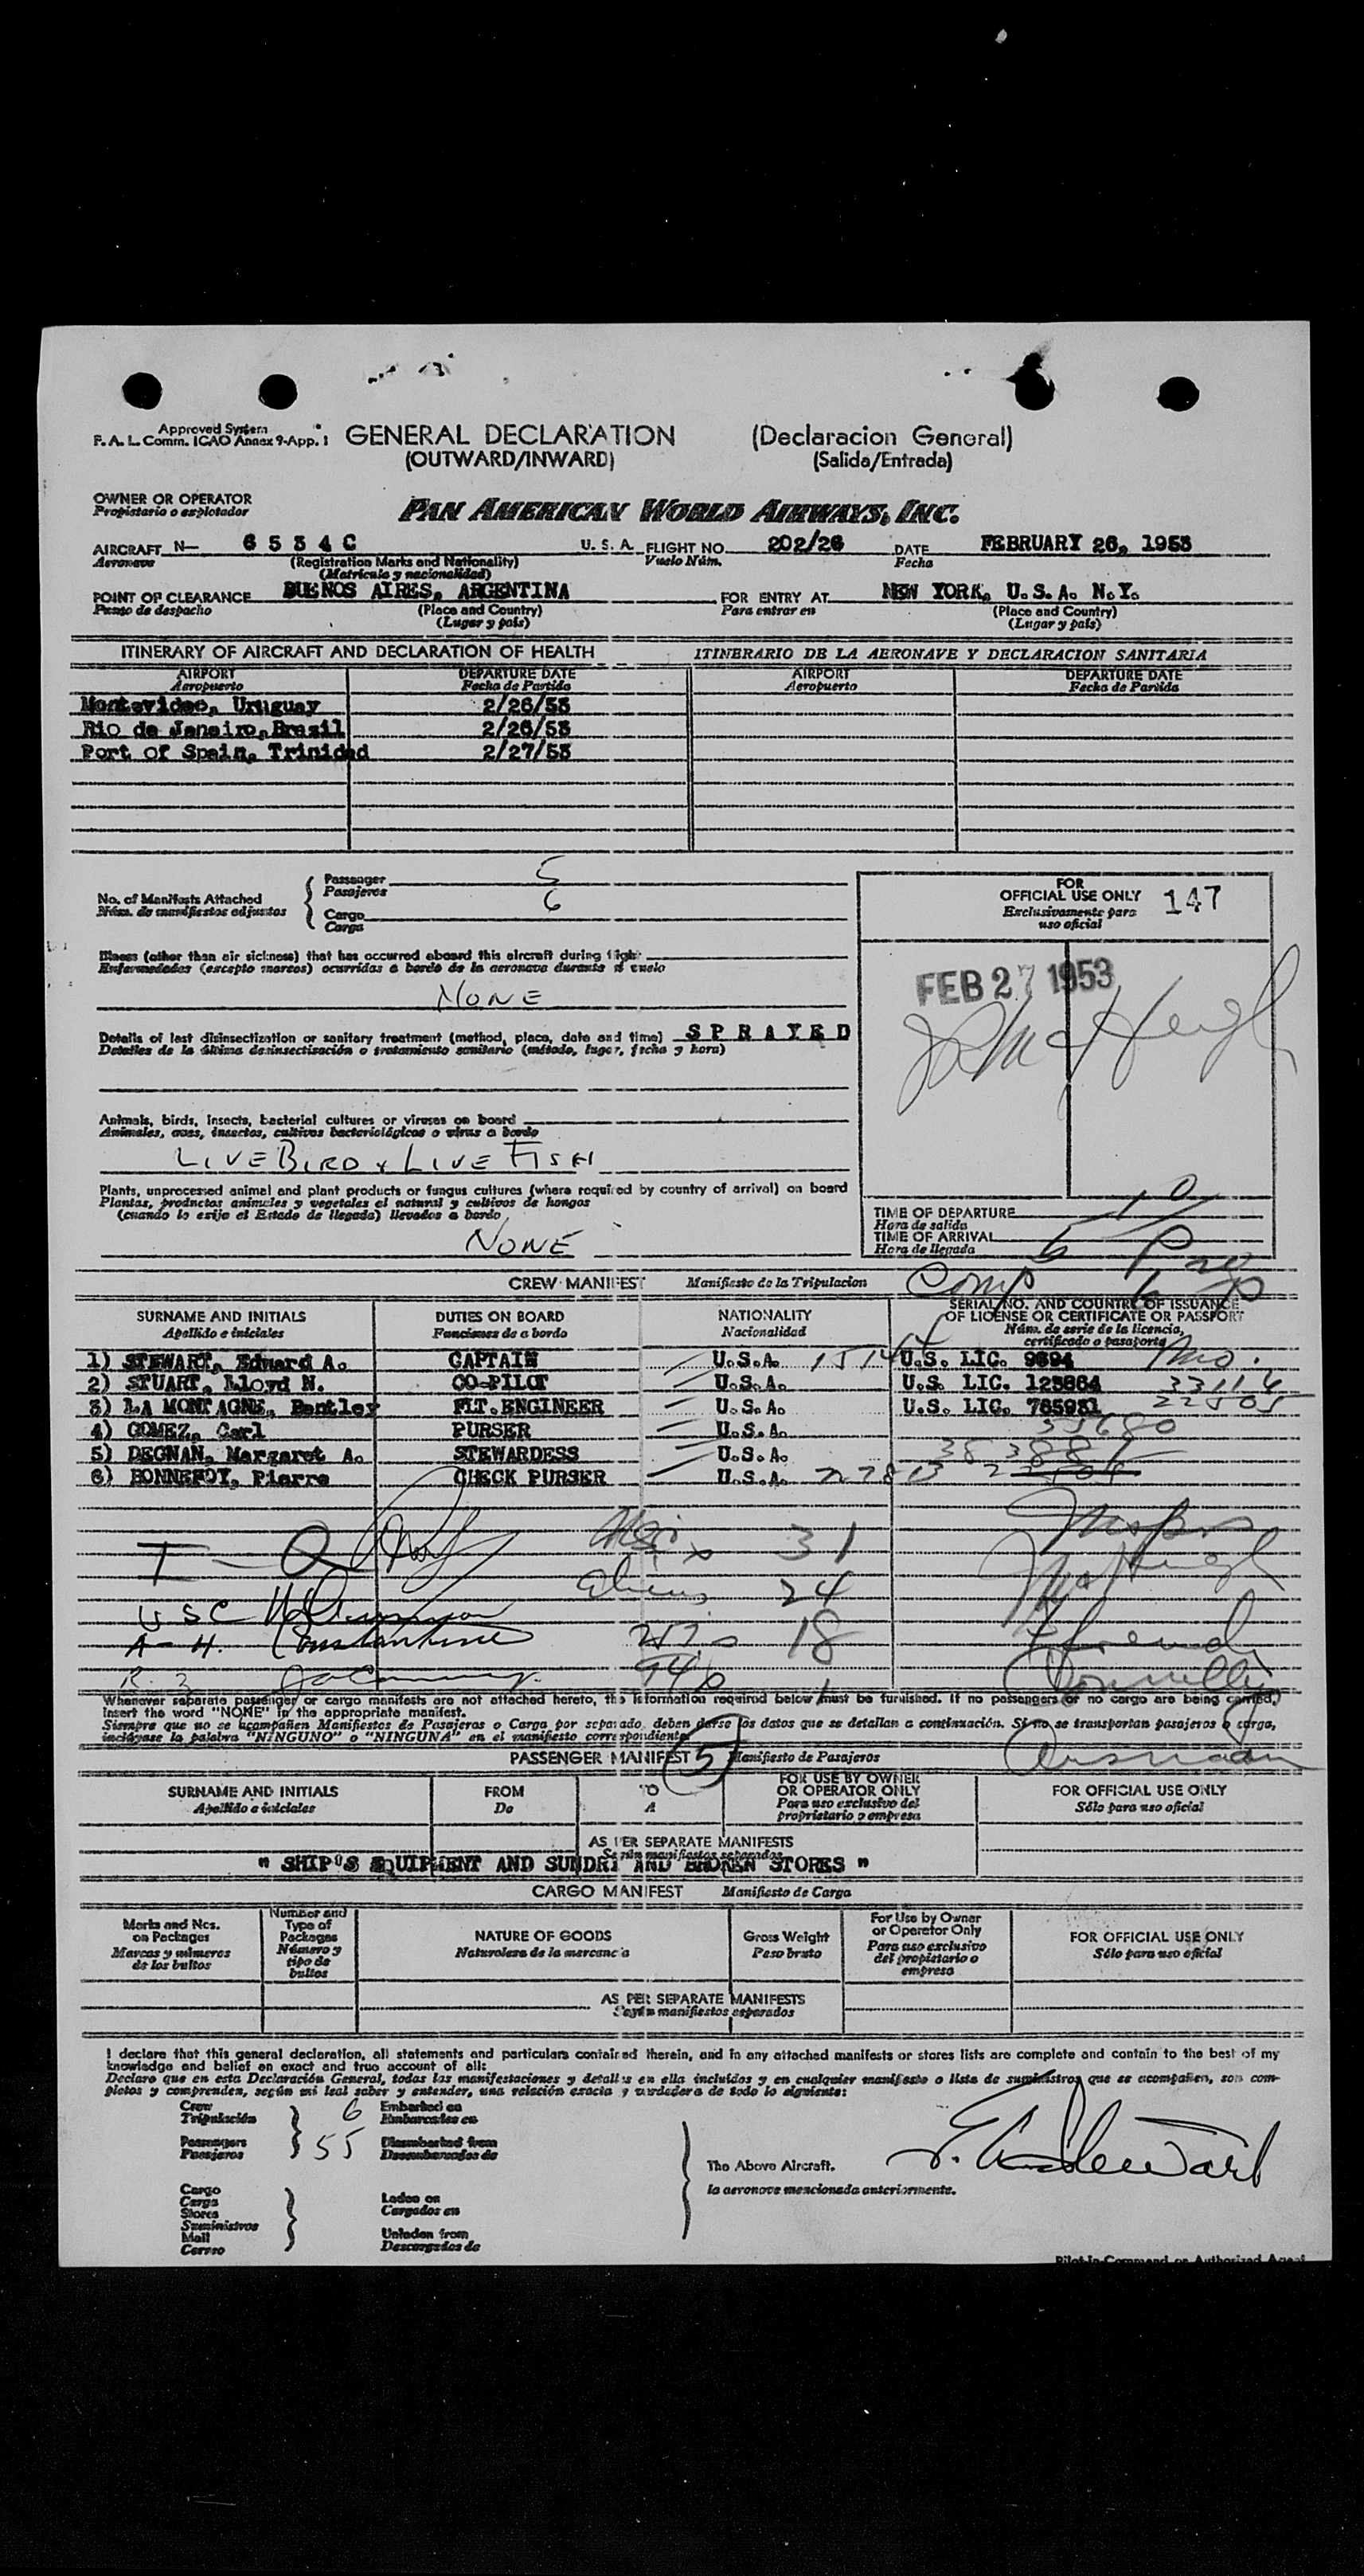 Approved System
F. A. L. Comm. ICAO Annex 9-App. 1
GENERAL DECLARATION (Declaracion General)
(OUTWARD/INWARD) (Salida/Entrada)
OWNER OR OPERATOR
Propietario o explotador
PAN AMERICAN WORLD AIRWAYS, INC.
AIRCRAFT N- 6 5 3 4 C U. S. A. FLIGHT NO. 202/26 DATE FEBRUARY 26, 1953
Aeronave (Registration Marks and Nationality) Vuelo Núm. Fecha
(Matrícula y nacionalidad)
POINT OF CLEARANCE BUENOS AIRES, ARGENTINA FOR ENTRY AT NEW YORK, U.S.A. N.Y.
Punto de despacho (Place and Country) Para entrar en (Place and Country)
(Lugar y país) (Lugar y país)
ITINERARY OF AIRCRAFT AND DECLARATION OF HEALTH ITINERARIO DE LA AERONAVE Y DECLARACION SANITARIA
AIRPORT DEPARTURE DATE AIRPORT DEPARTURE DATE
Aeropuerto Fecha de Partida Aeropuerto Fecha de Partida
Montevideo, Uruguay 2/26/53
Rio de Janeiro, Brazil 2/26/53
Port of Spain, Trinidad 2/27/53
No. of Manifests Attached
Núm. de manifiestos adjuntos
Passenger 5
Pasajeros
Cargo 6
Carga
FOR
OFFICIAL USE ONLY 147
Exclusivamente para
uso oficial
Illness (other than air sickness) that has occurred aboard this aircraft during flight
Enfermedades (excepto mareos) ocurridas a bordo de la aeronave durante el vuelo
NONE
FEB 27 1953
Details of last disinsectization or sanitary treatment (method, place, date and time) S P R A Y E D
Detalles de la última desinsectización o tratamiento sanitario (método, lugar, fecha y hora)
Animals, birds, insects, bacterial cultures or viruses on board
Animales, aves, insectos, cultivos bacteriológicos o virus a bordo
LIVE BIRD & LIVE FISH
Plants, unprocessed animal and plant products or fungus cultures (where required by country of arrival) on board
Plantas, productos animales y vegetales al natural y cultivos de hongos
(cuando lo exija el Estado de llegada) llevados a bordo
NONE
TIME OF DEPARTURE
Hora de salida
TIME OF ARRIVAL
Hora de llegada
CREW MANIFEST Manifiesto de la Tripulacion
SURNAME AND INITIALS DUTIES ON BOARD NATIONALITY SERIAL NO. AND COUNTRY OF ISSUANCE
OF LICENSE OR CERTIFICATE OR PASSPORT
Apellido e iniciales Funciones de a bordo Nacionalidad Núm. de serie de la licencia,
certificado o pasaporte
1) STEWART, Edward A. CAPTAIN U.S.A. U.S. LIC. 9694
2) STUART, Lloyd N. CO-PILOT U.S.A. U.S. LIC. 123864 33116
3) LA MONTAGNE, Bentley FLT.ENGINEER U.S.A. U.S. LIC. 765931 22505
4) GOMEZ, Carl PURSER U.S.A. 35680
5) DEGNAN, Margaret A. STEWARDESS U.S.A.
6) BONNEFOY, Pierre CHECK PURSER U.S.A.
31
I - Q
Aliens 24
USC
18
A - H. Constantine
Whenever separate passenger or cargo manifests are not attached hereto, the information required below must be furnished. If no passengers or no cargo are being carried,
insert the word "NONE" in the appropriate manifest.
Siempre que no se acompañen Manifiestos de Pasajeros o Carga por separado, deben darse los datos que se detallan a continuación. Si no se transportan pasajeros o carga,
inclúyase la palabra "NINGUNO" o "NINGUNA" en el manifiesto correspondiente.
PASSENGER MANIFEST 5 Manifiesto de Pasajeros
SURNAME AND INITIALS FROM TO FOR USE BY OWNER
OR OPERATOR ONLY FOR OFFICIAL USE ONLY
Apellido e iniciales De A Para uso exclusivo del
propietario o empresa Sólo para uso oficial
AS PER SEPARATE MANIFESTS
Según manifiestos separados
" SHIP'S EQUIPMENT AND SUNDRY AND BROKEN STORES "
CARGO MANIFEST Manifiesto de Carga
Marks and Nos.
on Packages
Marcas y números
de los bultos
Number and
Type of
Packages
Número y
tipo de
bultos
NATURE OF GOODS
Naturaleza de la mercancía
Gross Weight
Peso bruto
For Use by Owner
or Operator Only
Para uso exclusivo
del propietario o
empresa
FOR OFFICIAL USE ONLY
Sólo para uso oficial
AS PER SEPARATE MANIFESTS
Según manifiestos separados
I declare that this general declaration, all statements and particulars contained therein, and in any attached manifests or stores lists are complete and contain to the best of my
knowledge and belief an exact and true account of all:
Declaro que en esta Declaración General, todas las manifestaciones y detalles en ella incluidos y en cualquier manifiesto o lista de suministros que se acompañen, son com-
pletos y comprenden, según mi leal saber y entender, una relación exacta y verdadera de todo lo siguiente:
Crew 6 Embarked on
Tripulación Embarcados en
Passengers 55 Disembarked from
Pasajeros Desembarcados de
The Above Aircraft. E. A. Stewart
la aeronave mencionada anteriormente.
Cargo
Carga
Stores
Suministros
Mail
Correo
Laden on
Cargados en
Unladen from
Descargados de
Pilot-In-Command or Authorized Agent